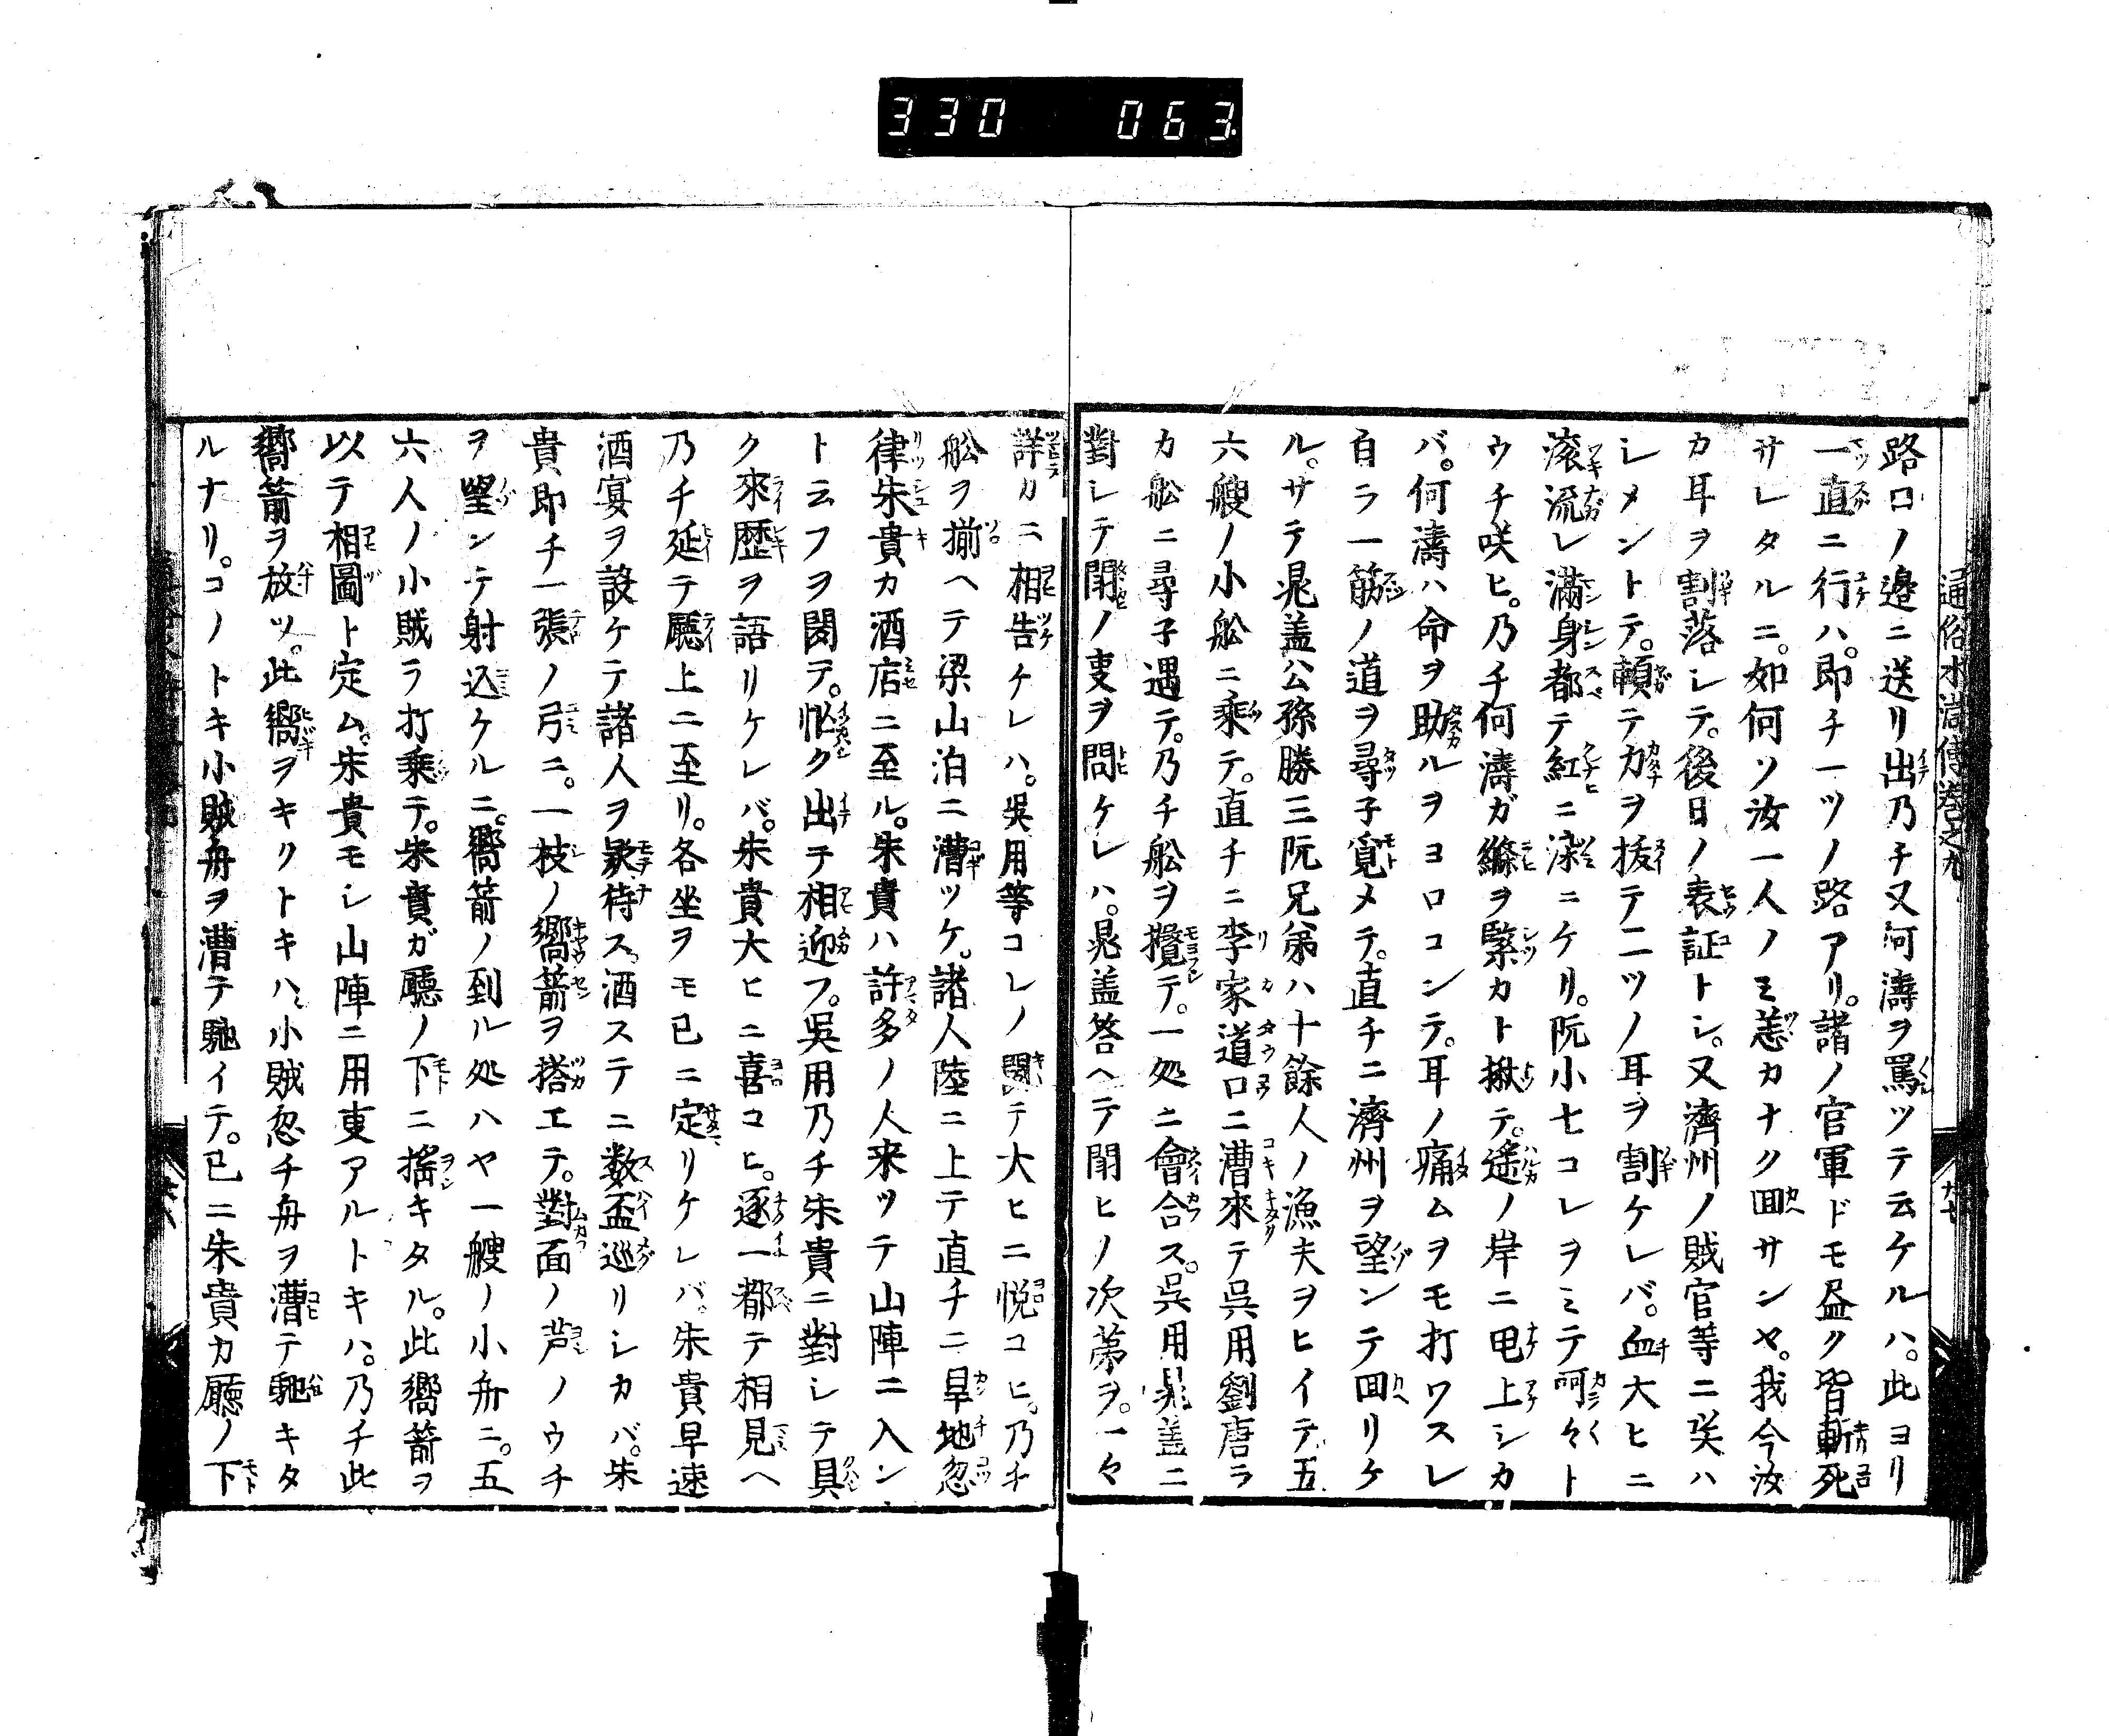 330 063
通俗水滸傳卷之九
路口ノ邊ニ送リ出乃チ又何濤ヲ罵ツテ云ケルハ。此ヨリ
一直ニ行ハ。即チ一ツノ路アリ。諸ノ官軍ドモ盡ク皆斬死
サレタルニ。如何ソ汝一人ノミ恙カナク回サンヤ。我今汝
カ耳ヲ割落シテ。後日ノ表証トシ。又濟州ノ賊官等ニ笑ハ
シメントテ。頓テ刀ヲ拔テ二ツノ耳ヲ割ケレバ。血大ヒニ
滚流レ滿身都テ紅ニ染ニケリ。阮小七コレヲミテ呵々ト
ウチ咲ヒ。乃チ何濤ガ縧ヲ緊カト揪テ。遙ノ岸ニ電上シカ
バ。何濤ハ命ヲ助ルヲヨロコンテ。耳ノ痛ムヲモ打ワスレ
自ラ一筋ノ道ヲ尋子覓メテ。直チニ濟州ヲ望ンテ回リケ
ル。サテ晁盖公孫勝三阮兄弟ハ十餘人ノ漁夫ヲヒイテ五
六艘ノ小舩ニ乘テ。直チニ李家道口ニ漕來テ呉用劉唐ラ
カ舩ニ尋子遇テ。乃チ舩ヲ攬テ。一処ニ會合ス。呉用晁盖ニ
對シテ鬧ノ叓ヲ問ケレハ。晁盖答ヘテ鬧ヒノ次第ヲ。一々
詳カニ相告ケレハ。呉用等コレノ聞テ大ヒニ悦コヒ。乃チ
舩ヲ揃ヘテ梁山泊ニ漕ツケ。諸人陸ニ上テ直チニ旱地忽
律朱貴カ酒店ニ至ル。朱貴ハ許多ノ人来ツテ山陣ニ入ン
ト云フヲ聞テ。忙ク出テ相迎フ。呉用乃チ朱貴ニ對シテ具
ク來歴ヲ語リケレバ。朱貴大ヒニ喜コヒ。逐一都テ相見ヘ
乃チ延テ廳上ニ至リ。各坐ヲモ已ニ定リケレバ。朱貴早速
酒宴ヲ設ケテ諸人ヲ欵待ス。酒ステニ数盃巡リシカバ。朱
貴即チ一張ノ弓ニ。一枝ノ嚮箭ヲ搭エテ。對面ノ芦ノウチ
ヲ望ンテ射込ケルニ。嚮箭ノ到ル処ハヤ一艘ノ小舟ニ。五
六人ノ小賊ラ打乘テ。朱貴ガ廳ノ下ニ搖キタル。此嚮箭ヲ
以テ相圖ト定ム。朱貴モシ山陣ニ用叓アルトキハ。乃チ此
嚮箭ヲ放ツ。此嚮ヲキリトキハ。小賊忽チ舟ヲ漕テ馳キタ
ルナリ。コノトキ小賊舟ヲ漕テ馳イテ。已ニ朱貴カ廳ノ下